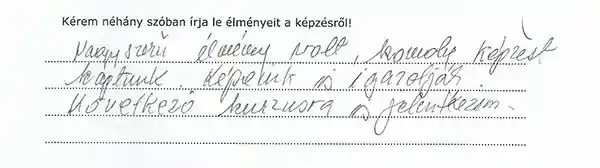 Kérem néhány szóban írja le élményeit a képzésről!
Nagyszerű élmény volt, komoly képzést
kaptunk. Képeink is igazolják.
Következő kurzusra is jelentkezem.